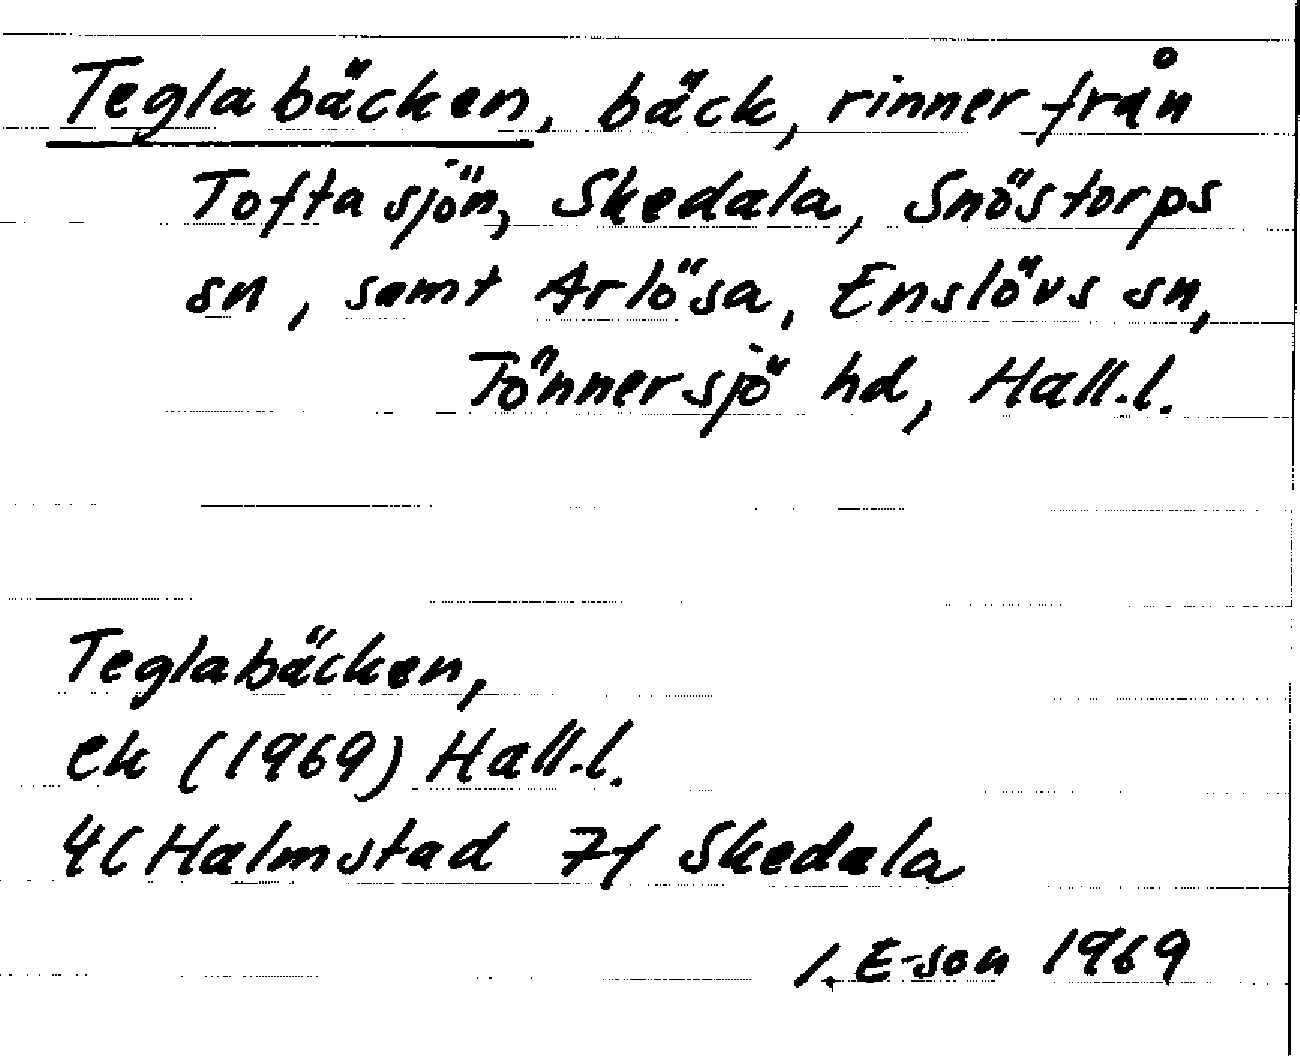 Teglabäcken, bäck, rinner från
Toftasjön, Skedala, Snöstorps
sn, samt Arlösa, Enslövs sn,
Tönnersjö hd, Hall.l.
Teglabäcken,
ek (1969) Hall.l.
4C Halmstad 7f Skedala
I. E-son 1969